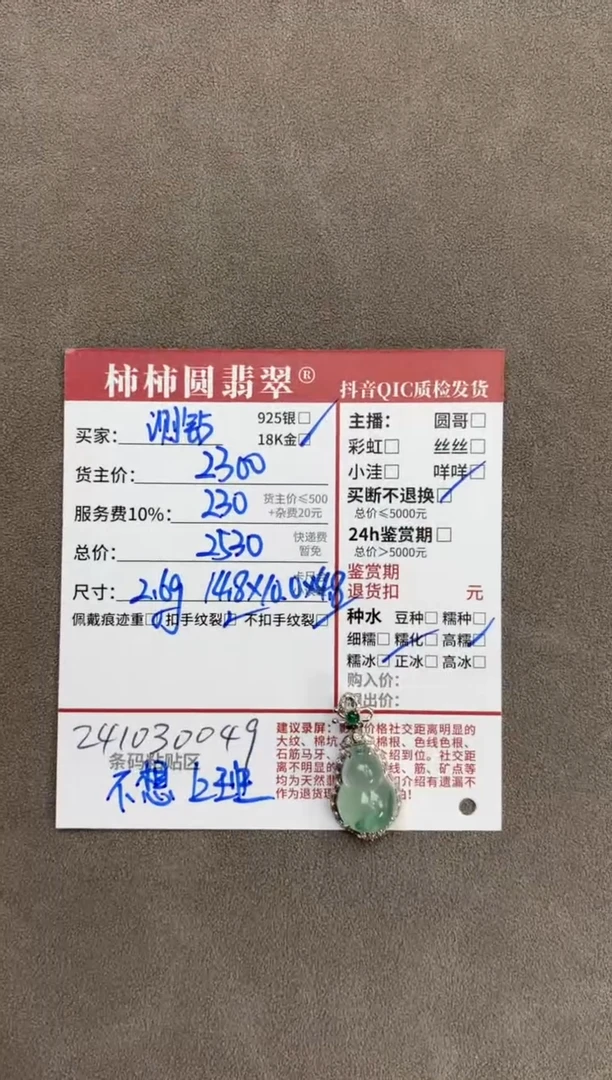 柿柿圆翡翠® 抖音QIC质检发货
买家： 925银□
18K金□
货主价：2300
服务费10%：230 货主价≤500
+杂费20元
总价：2530 快递费
暂免
尺寸：2.6g 14.8×10.0×4.8
佩戴痕迹重□ 扣手纹裂□ 不扣手纹裂□
主播： 圆哥□
彩虹□ 丝丝□
小洼□ 咩咩□
买断不退换□
总价≤5000元
24h鉴赏期□
总价>5000元
鉴赏期
退货扣 元
种水 豆种□ 糯种□
细糯□ 糯化□ 高糯□
糯冰□ 正冰□ 高冰□
购入价：
出价：
241030049
条码粘贴区
不想上班
建议录屏： 价格社交距离明显的
大纹、棉坑 棉根、色线色根、
石筋马牙、 绍到位。社交距
离不明显的 线、筋、矿点等
均为天然 介绍有遗漏不
作为退货理